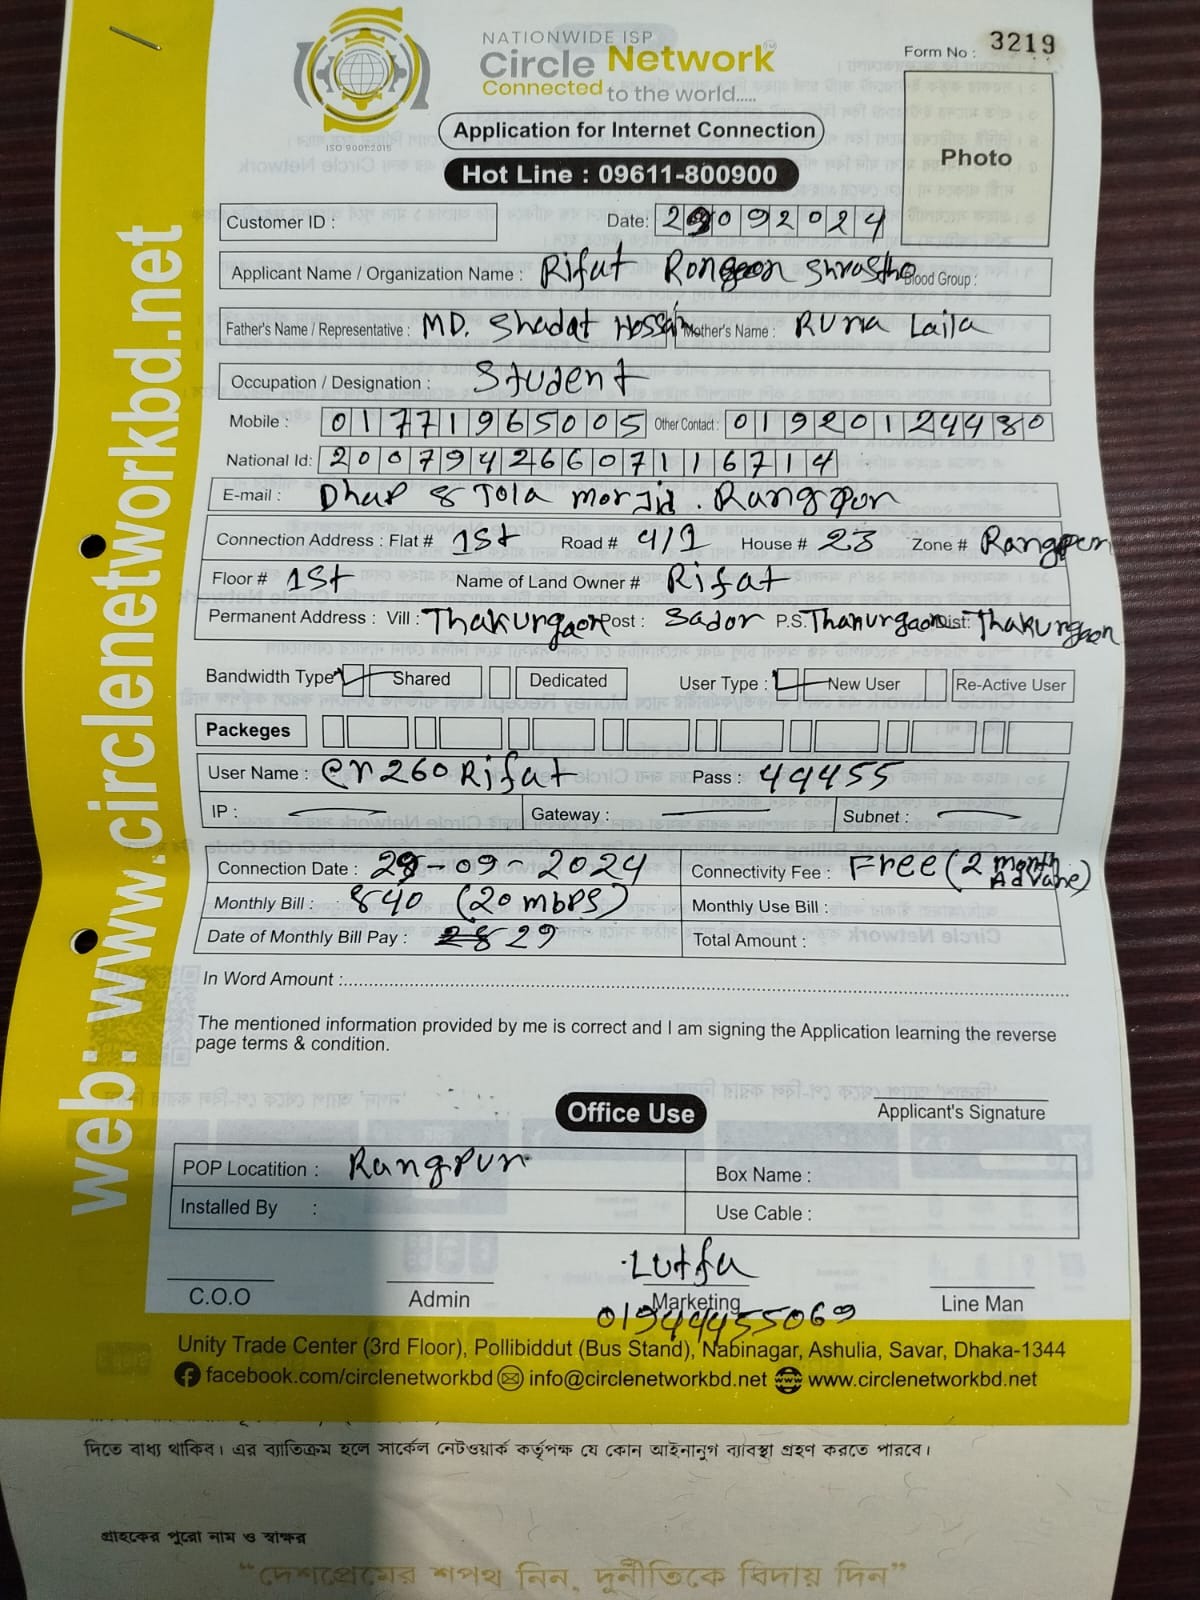 NATIONWIDE ISP
Circle Network
Connected to the world.....
ISO 9001:2015
Form No : 3219
Application for Internet Connection
Hot Line : 09611-800900
Photo
Customer ID :
Date: 29092024
Applicant Name / Organization Name : Rifat Rongeon Shrastho Blood Group :
Father's Name / Representative : MD. Shadat Hossain Mother's Name : Runa Laila
Occupation / Designation : Student
Mobile : 01771965005 Other Contact : 01920124480
National Id: 20079426607116714
E-mail : Dhap 8 Tola morjid. Rangpur
Connection Address : Flat # 1st Road # 4/1 House # 23 Zone # Rangpur
Floor # 1st Name of Land Owner # Rifat
Permanent Address : Vill : Thakurgaon Post : Sador P.S. Thanurgaon Dist: Thakurgaon
Bandwidth Type Shared Dedicated User Type : New User Re-Active User
Packeges
User Name : cn260Rifat Pass : 44455
IP : Gateway : Subnet :
Connection Date : 29-09-2024 Connectivity Fee : Free (2 month Advane)
Monthly Bill : 840 (20 mbps) Monthly Use Bill :
Date of Monthly Bill Pay : 29 Total Amount :
In Word Amount :
The mentioned information provided by me is correct and I am signing the Application learning the reverse
page terms & condition.
Applicant's Signature
Office Use
POP Locatition : Rangpur Box Name :
Installed By : Use Cable :
Lutfa
C.O.O Admin Marketing Line Man
01944455069
Unity Trade Center (3rd Floor), Pollibiddut (Bus Stand), Nabinagar, Ashulia, Savar, Dhaka-1344
facebook.com/circlenetworkbd info@circlenetworkbd.net www.circlenetworkbd.net
web: www.circlenetworkbd.net
দিতে বাধ্য থাকিব। এর ব্যতিক্রম হলে সার্কেল নেটওয়ার্ক কর্তৃপক্ষ যে কোন আইনানুগ ব্যাবস্থা গ্রহণ করতে পারবে।
গ্রাহকের পুরো নাম ও স্বাক্ষর
“দেশপ্রেমের শপথ নিন, দুর্নীতিকে বিদায় দিন”